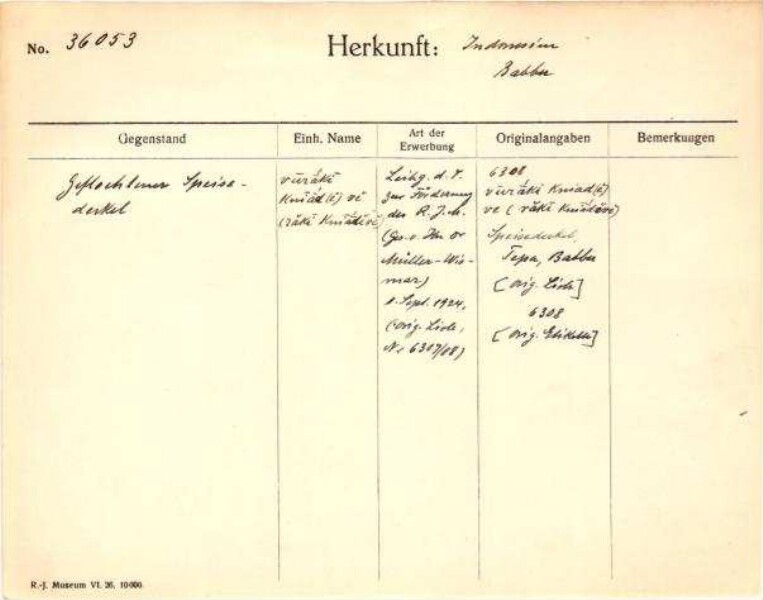 No. 36053
Herkunft: Indonesien
Babber
Gegenstand
Einh. Name
Art der
Erwerbung
Originalangaben
Bemerkungen
Geflochtener Speise-
deckel
vūrăki
Kniăd(ĕ) vĕ
(răki Kniădĕvĕ)
Leihg. d. V.
zur Förderung
des R. J. M.
(Ges. v. Hr. Dr
Müller-Wis-
mar)
Sept. 1924,
(orig. Liste,
Nr 6307/08)
6308
vūrăki Kniad(ĕ)
ve (răki Kniădĕvĕ)
Speisedeckel,
Tepa, Babber
[orig. Liste]
6308
[orig. Etikette]
R.-J. Museum VI. 26. 10000.